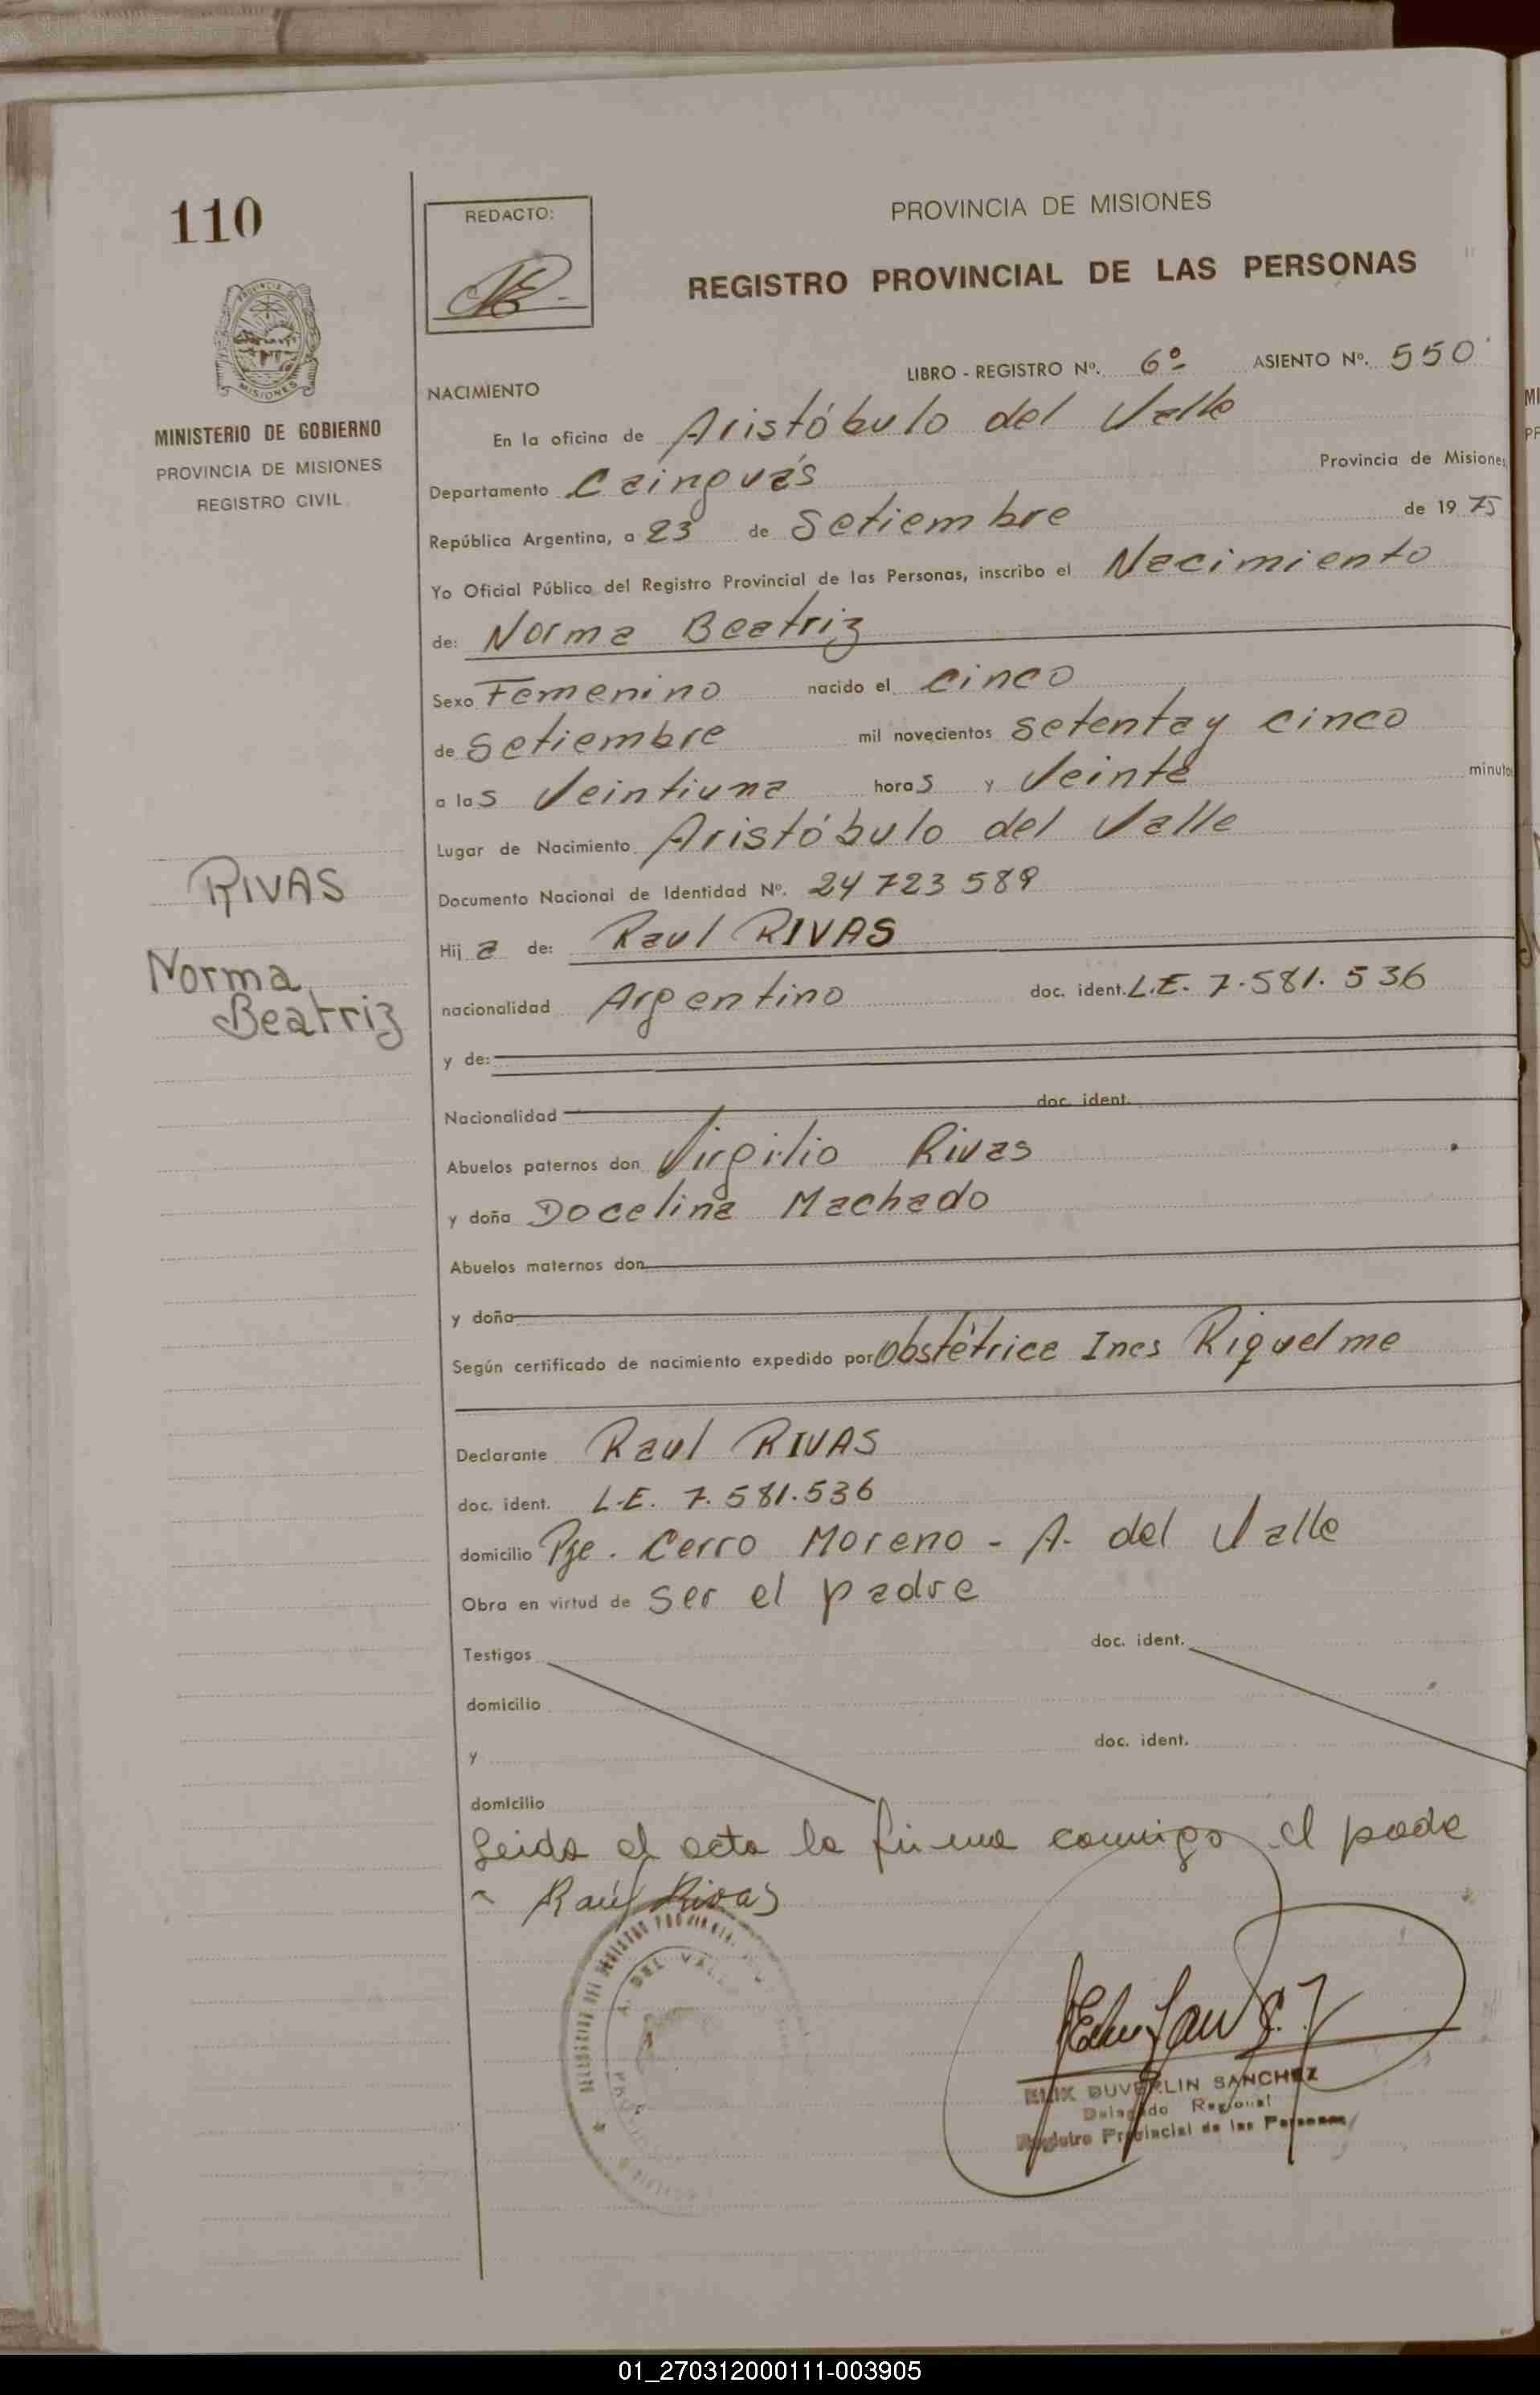 110
REDACTO:
PROVINCIA DE MISIONES
REGISTRO PROVINCIAL DE LAS PERSONAS
MINISTERIO DE GOBIERNO
PROVINCIA DE MISIONES
REGISTRO CIVIL
LIBRO - REGISTRO Nº. 6º ASIENTO Nº. 550
NACIMIENTO
En la oficina de Aristóbulo del Valle
Departamento Cainguás Provincia de Misiones
República Argentina, a 23 de Setiembre de 1975
Yo Oficial Público del Registro Provincial de las Personas, inscribo el Nacimiento
de: Norma Beatriz
Sexo Femenino nacido el cinco
de Setiembre mil novecientos setenta y cinco
a las Veintiuna horas y Veinte minutos
Lugar de Nacimiento Aristóbulo del Valle
RIVAS
Norma
Beatriz
Documento Nacional de Identidad Nº. 24 723 589
Hij a de: Raul RIVAS
nacionalidad Argentino doc. ident. L.E. 7.581.536
y de:
Nacionalidad doc. ident.
Abuelos paternos don Virgilio Rivas
y doña Docelina Machado
Abuelos maternos don
y doña
Según certificado de nacimiento expedido por Obstétrica Ines Riquelme
Declarante Raul RIVAS
doc. ident. L.E. 7.581.536
domicilio Pje. Cerro Moreno - A. del Valle
Obra en virtud de ser el padre
Testigos doc. ident.
domicilio
y doc. ident.
domicilio
Leida el acta la firma conmigo el padre
Raúl Rivas
DUVERLIN SANCHEZ
Delegado Regional
Registro Provincial de las Personas
01_270312000111-003905